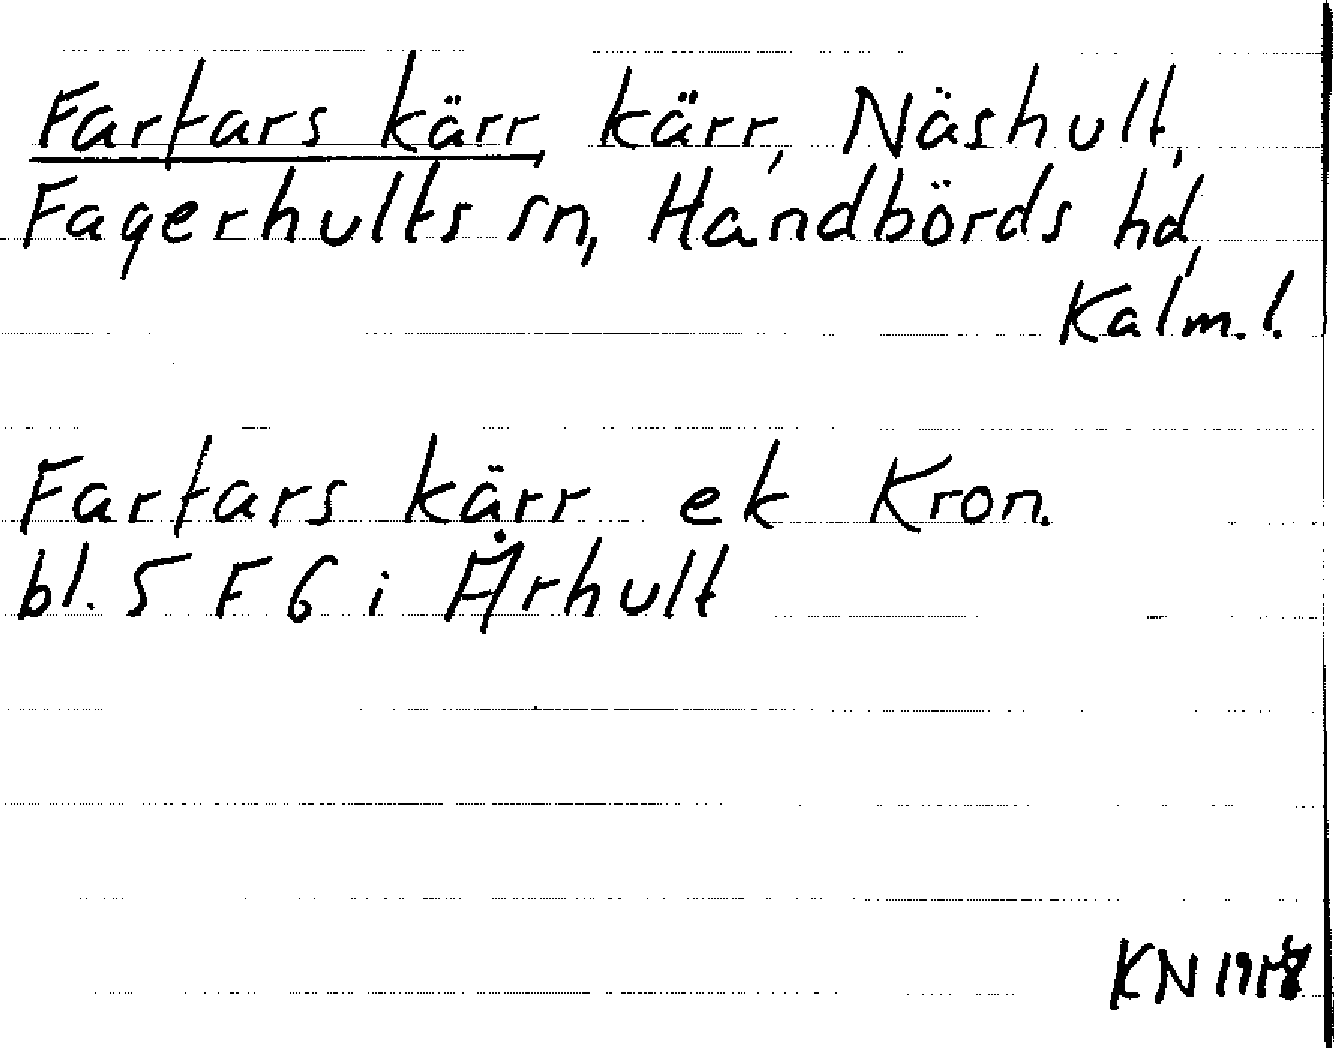 Farfars kärr, kärr, Näshult,
Fagerhults sn, Handbörds hd,
Kalm. l.
Farfars kärr ek Kron.
bl. 5 F 6 i Århult
KN